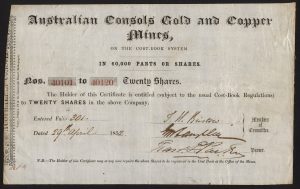 Australian Consols Gold and Copper
Mines,
ON THE COST-BOOK SYSTEM
IN 60,000 PARTS OR SHARES.
Nos. 40101 to 40120 Twenty Shares.
The Holder of this Certificate is entitled (subject to the usual Cost-Book Regulations)
to TWENTY SHARES in the above Company.
Entered Folio 301.
Dated 29th April 1852
Members
of
Committee.
N.B.—The Holder of this Certificate may at any time require the above Shares to be registered in the Cost Book at the Office of the Mines.